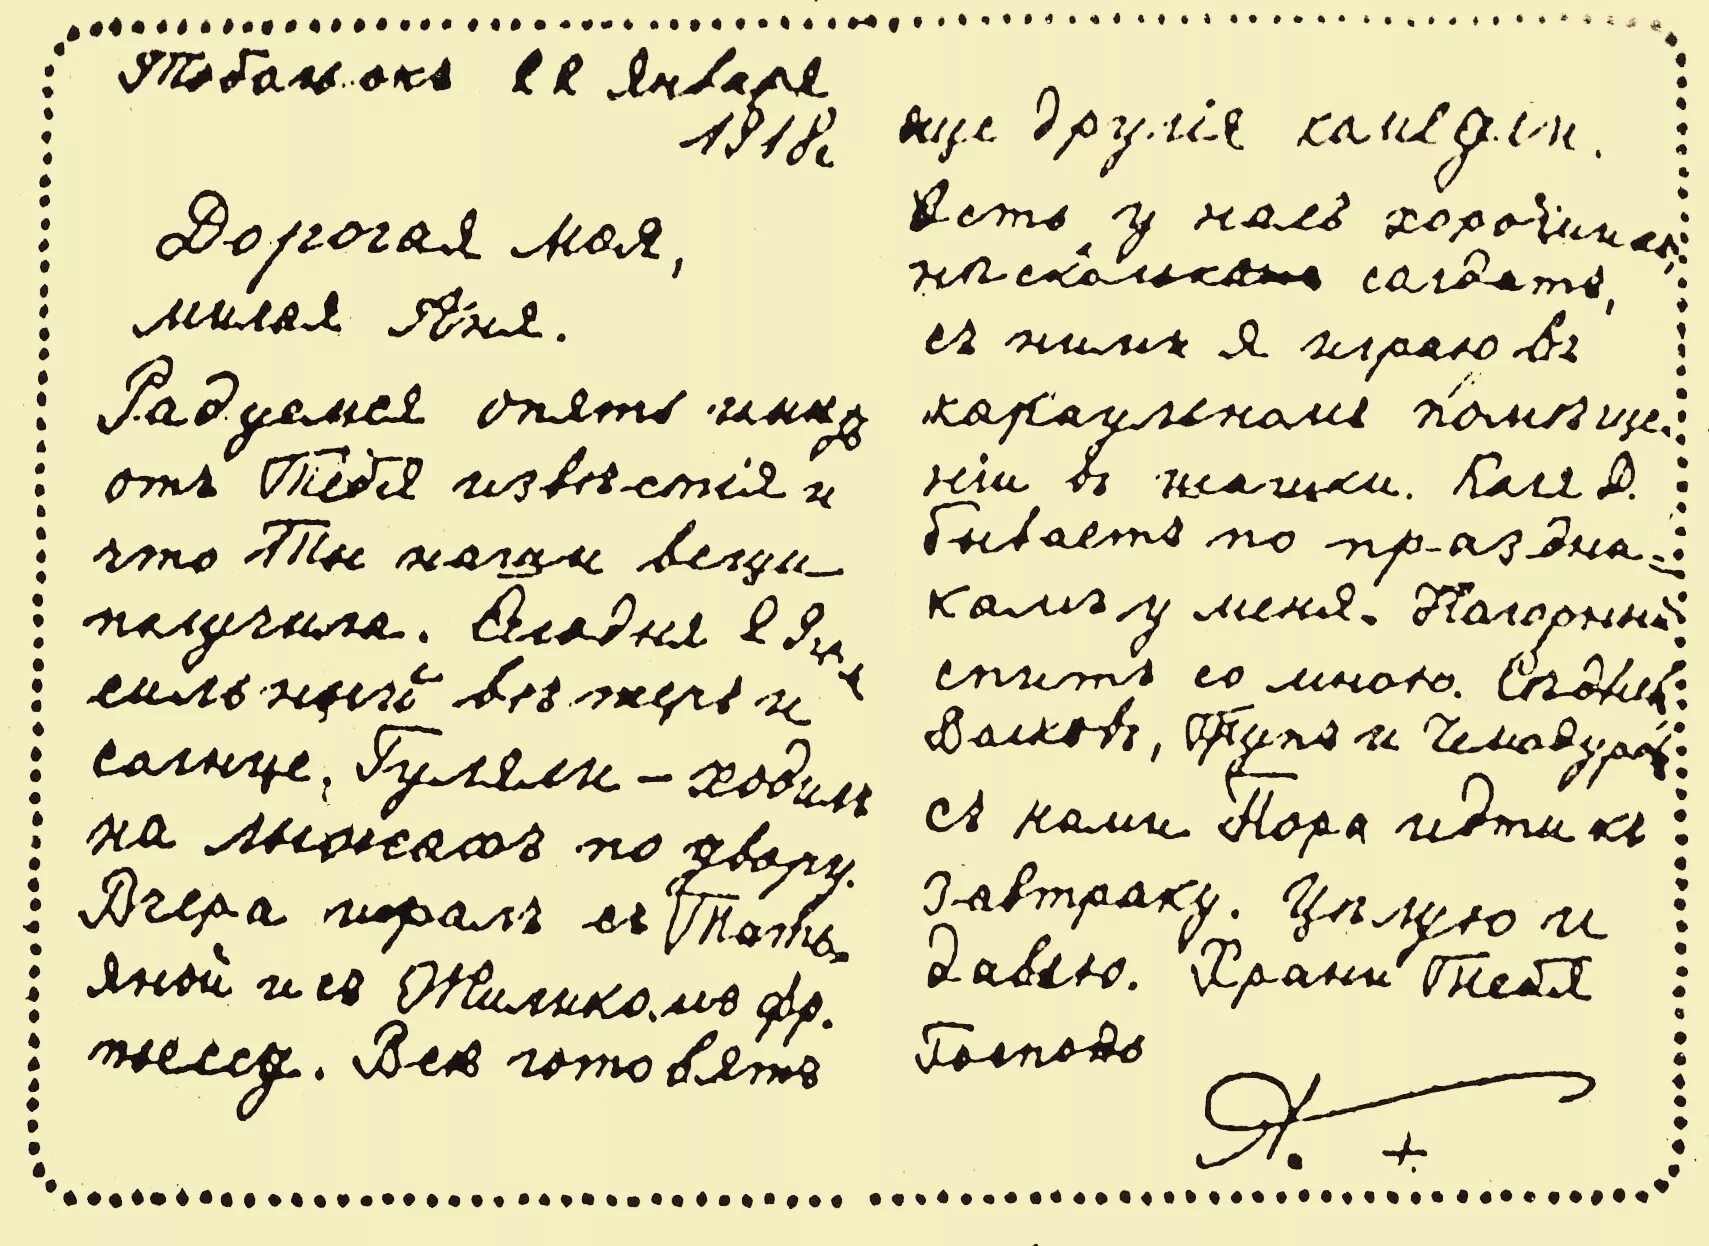 Тобольскъ 22 Января
1918 г.
Дорогая моя,
милая Аня.
Радуемся опять имѣть
отъ Тебя извѣстія и
что Ты наши вещи
получила. Сегодня 22
сильный вѣтеръ и
солнце. Гуляли – ходилъ
на лыжахъ по двору.
Вчера игралъ съ Тать-
яной и съ Жиликомъ фр.
пьесу. Всѣ готовятъ
еще другія комедіи.
Есть у насъ хорошихъ
нѣсколько солдатъ,
съ ними я играю въ
караульномъ помѣще-
ніи въ шашки. Коля Д.
бываетъ по праздни-
камъ у меня. Нагорный
спитъ со мною. Съѣднев
Волковъ, Трупъ и Чемодуровъ
съ нами Пора идти къ
завтраку. Цѣлую и
давлю. Храни Тебя
Господь
А. +